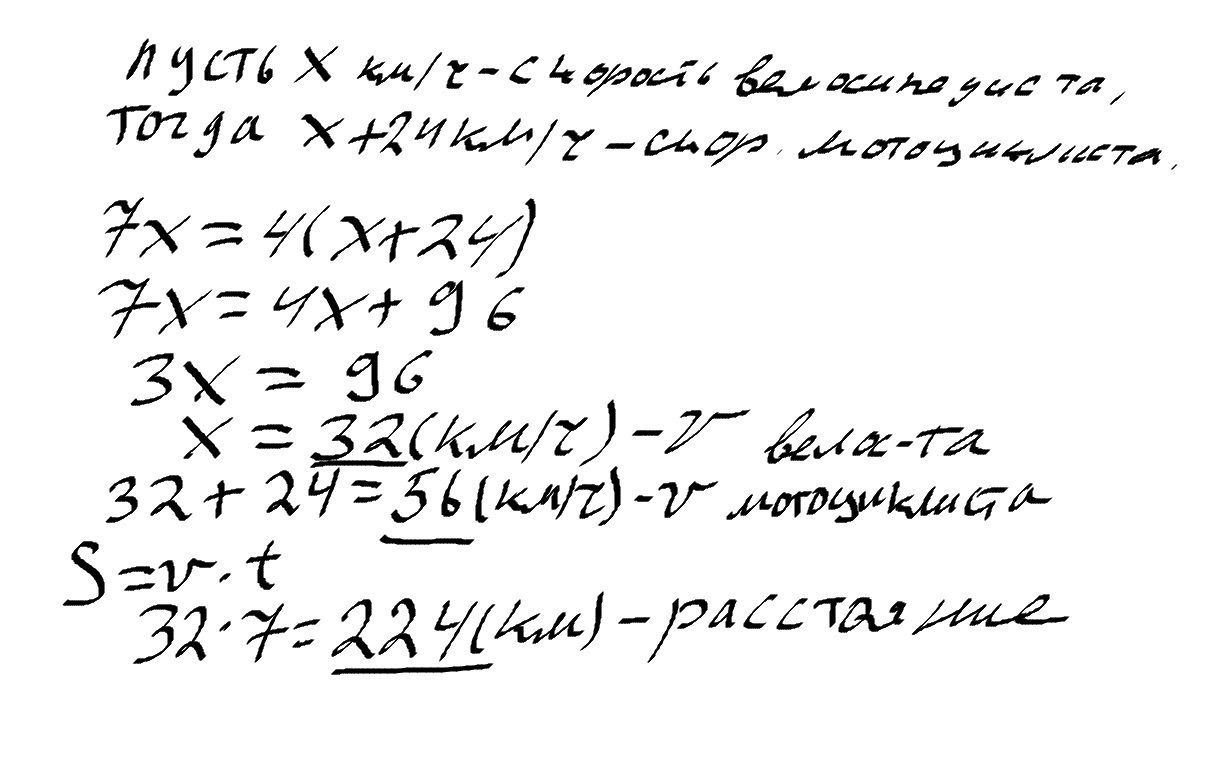 пусть x км/ч - скорость велосипедиста,
тогда x+24 км/ч - скор. мотоциклиста.
7x = 4(x+24)
7x = 4x + 96
3x = 96
x = 32 (км/ч) - v вело-та
32 + 24 = 56 (км/ч) - v мотоциклиста
S = v · t
32 · 7 = 224 (км) - расстояние